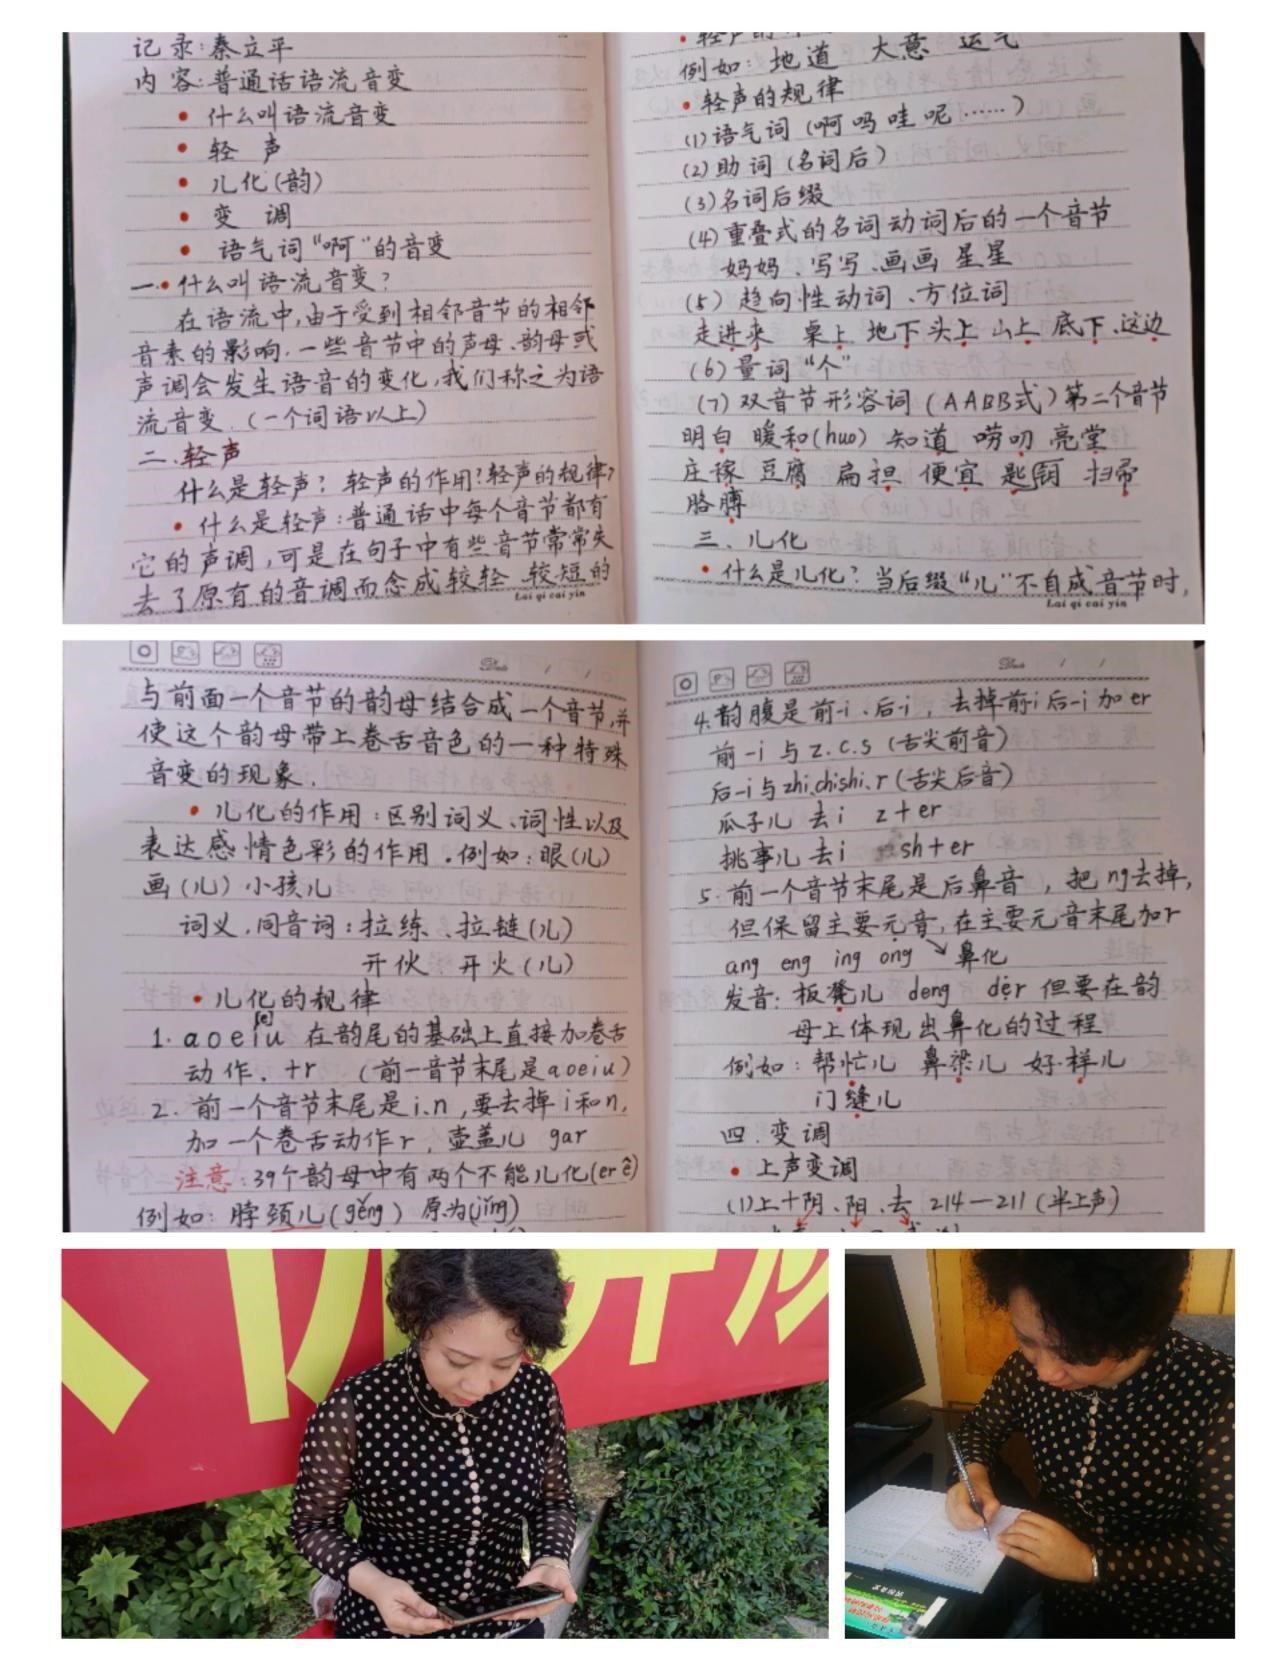 记录:秦立平
内容:普通话语流音变
• 什么叫语流音变
• 轻 声
• 儿化(韵)
• 变 调
• 语气词"啊"的音变
一.•什么叫语流音变?
在语流中,由于受到相邻音节的相邻
音素的影响.一些音节中的声母、韵母或
声调会发生语音的变化,我们称之为语
流音变.(一个词语以上)
二.轻声
什么是轻声?轻声的作用?轻声的规律?
• 什么是轻声:普通话中每个音节都有
它的声调,可是在句子中有些音节常常失
去了原有的音调而念成较轻、较短的
Lai qi cai yin
例如:地道 大意 运气
• 轻声的规律
(1)语气词(啊吗哇呢……)
(2)助词(名词后)
(3)名词后缀
(4)重叠式的名词动词后的一个音节
妈妈、写写、画画 星星
(5)趋向性动词、方位词
走进来 桌上 地下 头上 山上 底下、这边
(6)量词"个"
(7)双音节形容词(AABB式)第二个音节
明白 暖和(huo) 知道 唠叨 亮堂
庄稼 豆腐 扁担 便宜 匙钥 扫帚
胳膊
三、儿化
• 什么是儿化?当后缀"儿"不自成音节时,
Lai qi cai yin
Date / /
与前面一个音节的韵母结合成一个音节,并
使这个韵母带上卷舌音色的一种特殊
音变的现象.
• 儿化的作用:区别词义、词性以及
表达感情色彩的作用.例如:眼(儿)
画(儿)小孩儿
词义.同音词:拉练、拉链(儿)
开伙 开火(儿)
• 儿化的规律
1. a o e i u 在韵尾的基础上直接加卷舌
动作.+r (前一音节末尾是aoeiu)
2. 前一个音节末尾是i.n,要去掉i和n,
加一个卷舌动作r,壶盖儿 gar
注意:39个韵母中有两个不能儿化(er ê)
例如:脖颈儿(gěng)原为(jǐng)
Date / /
4.韵腹是前-i、后-i,去掉前i后-i加er
前-i与z.c.s(舌尖前音)
后-i与zhi.chi.shi.r(舌尖后音)
瓜子儿 去i z+er
挑事儿 去i sh+er
5.前一个音节末尾是后鼻音,把ng去掉,
但保留主要元音,在主要元音末尾加r
ang eng ing ong 鼻化
发音:板凳儿 deng der 但要在韵
母上体现出鼻化的过程
例如:帮忙儿 鼻梁儿 好样儿
门缝儿
四.变调
• 上声变调
(1)上+阴、阳、去 214—211(半上声)